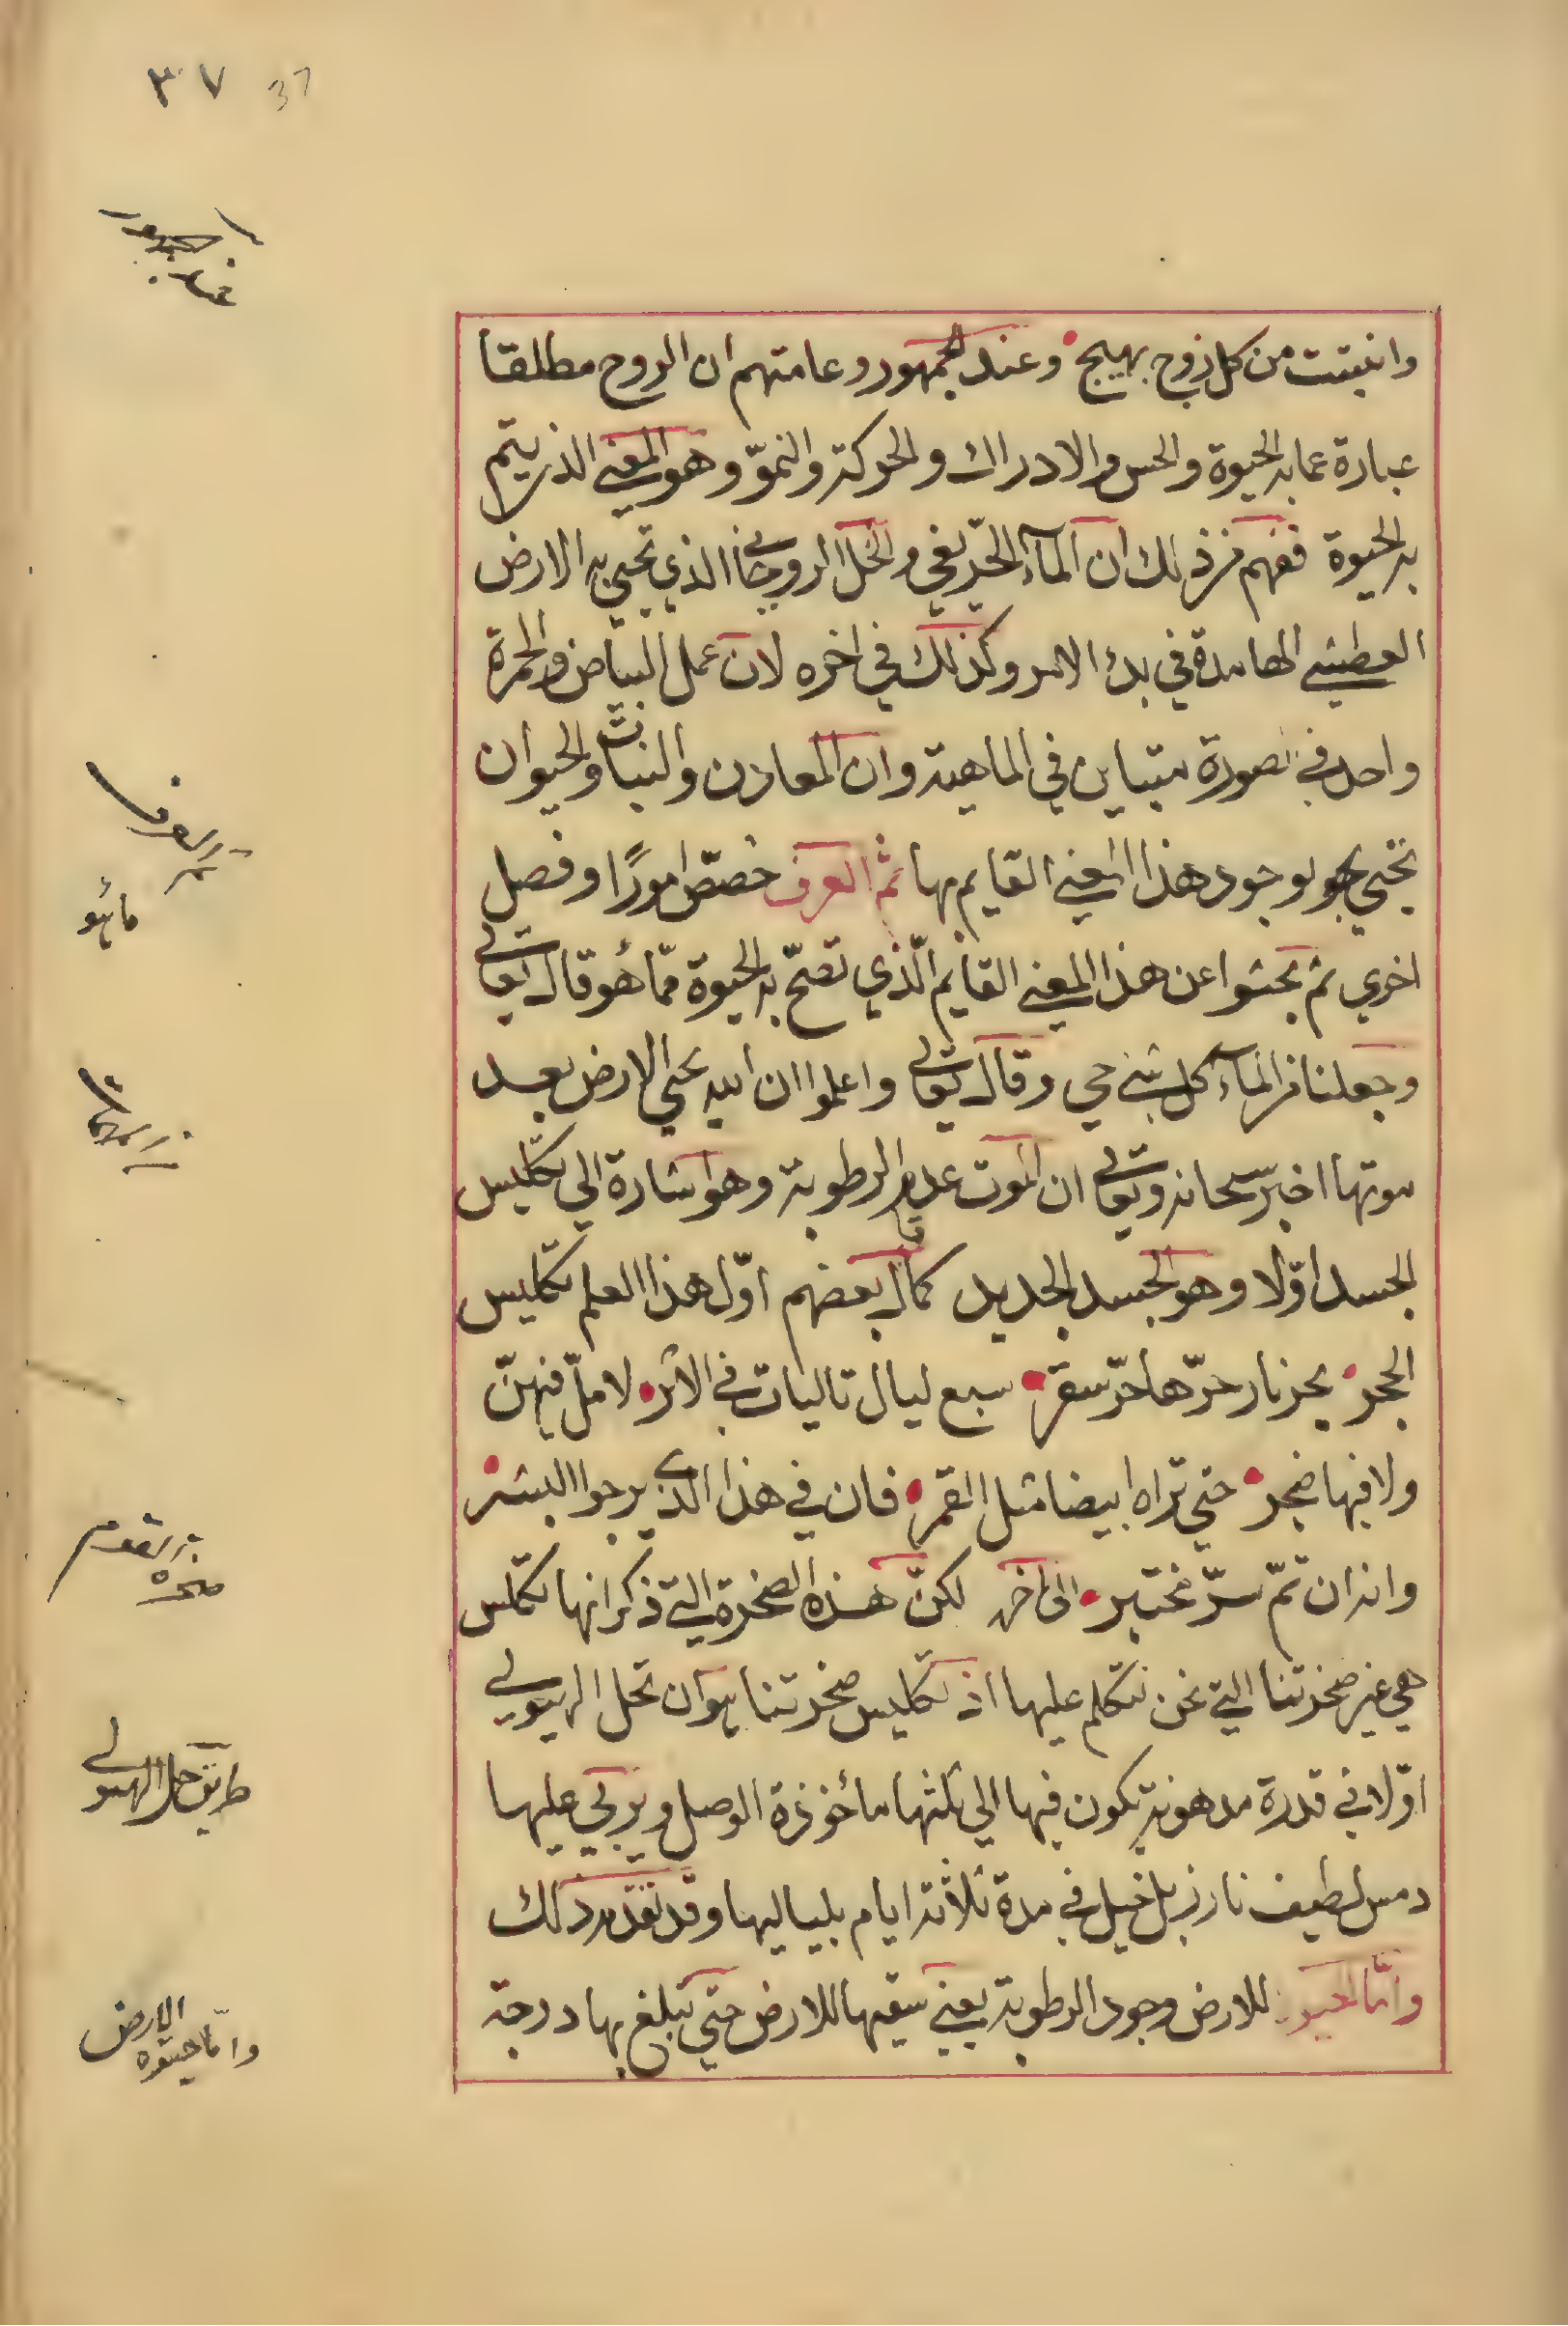 ٣٧ 37
وانبتت من كل زوج بهيج وعند الجمهور وعامتهم ان الروح مطلقا
عبارة عما به الحيوة والحس والادراك والحركة والنموّ وهو المعنى الذي يتم
به الحيوة ففهم من ذلك ان المآء الحرّيفي والخل الروحاني الذي تحيى به الارض
العطشى الهامدة في بدء الامر وكذلك في اخره لان عمل البياض والحمرة
واحد في الصورة متباين في الماهية وان المعادن والنبات والحيوان
تحيى بوجود هذا المعنى القايم بها ثم العرف خصّص امورًا وفصل
اخرى ثم بحثوا عن هذا المعنى القايم الّذي تصحّ به الحيوة ممّا هو قال تعالى
وجعلنا من المآء كل شئ حي وقال تعالى واعلموا ان الله يحيى الارض بعد
موتها اخبر سبحانه وتعالى ان الموت عدم الرطوبة وهو اشارة الى تكليس
الجسد اوّلا وهو الجسد الجديد كما قال بعضهم اوّل هذا العلم تكليس
الحجر بحر نار حرّها حرّ سقر سبع ليال تاليات في الاثر لا ملّ فيهنّ
ولا فيها ضجر حتى تراه ابيضا مثل القمر فان في هذا الذي يرجوا البشر
وانه ان تمّ سرّ مختبر الى اخره لكنّ هذه الصخرة التي ذكر انها تكلس
هي غير صخرتنا التي نحن نتكلم عليها اذ تكليس صخرتنا هو ان تحل الهيولى
اوّلا في قدرة مدهونة تكون فيها الى ثلثها مأخوذة الوصل ويركى عليها
دمس لطيف نار زبل خيل في مدة ثلاثة ايام بلياليها وقد تقدم ذلك
وامّا الحيوة للارض وجود الرطوبة يعني سقيها للارض حتى تبلغ بها درجة
العرف
ما هو
صخرة القوم
طريق حل الهيولى
وامّا حيوة الارض